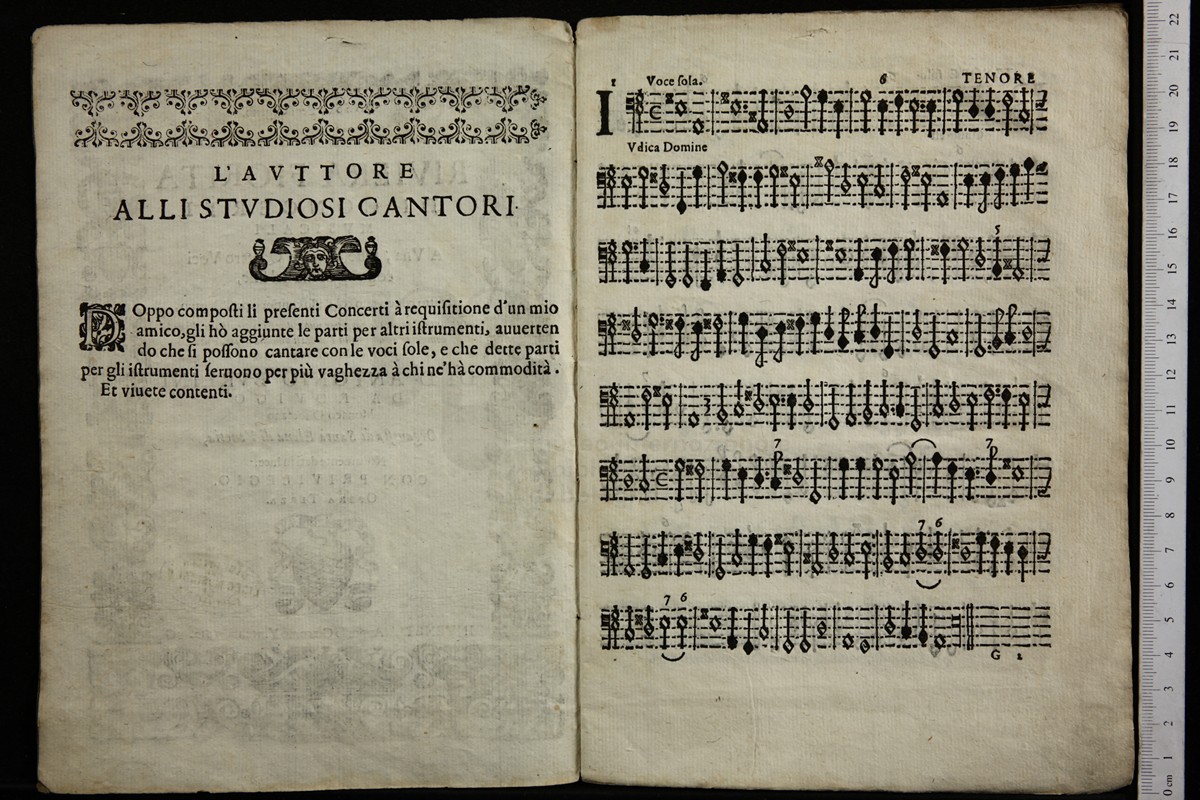 L'AVTTORE
ALLI STVDIOSI CANTORI.
DOppo composti li presenti Concerti à requisitione d'un mio
amico, gli hò aggiunte le parti per altri istrumenti, auuerten
do che si possono cantare con le voci sole, e che dette parti
per gli istrumenti seruono per più vaghezza à chi ne'hà commodità.
Et viuete contenti.
1 Voce sola. 6 TENORE
I
Vdica Domine
5
7 7
7 6
7 6
G 2
22
21
20
19
18
17
16
15
14
13
12
11
10
9
8
7
6
5
4
3
2
1
0 cm